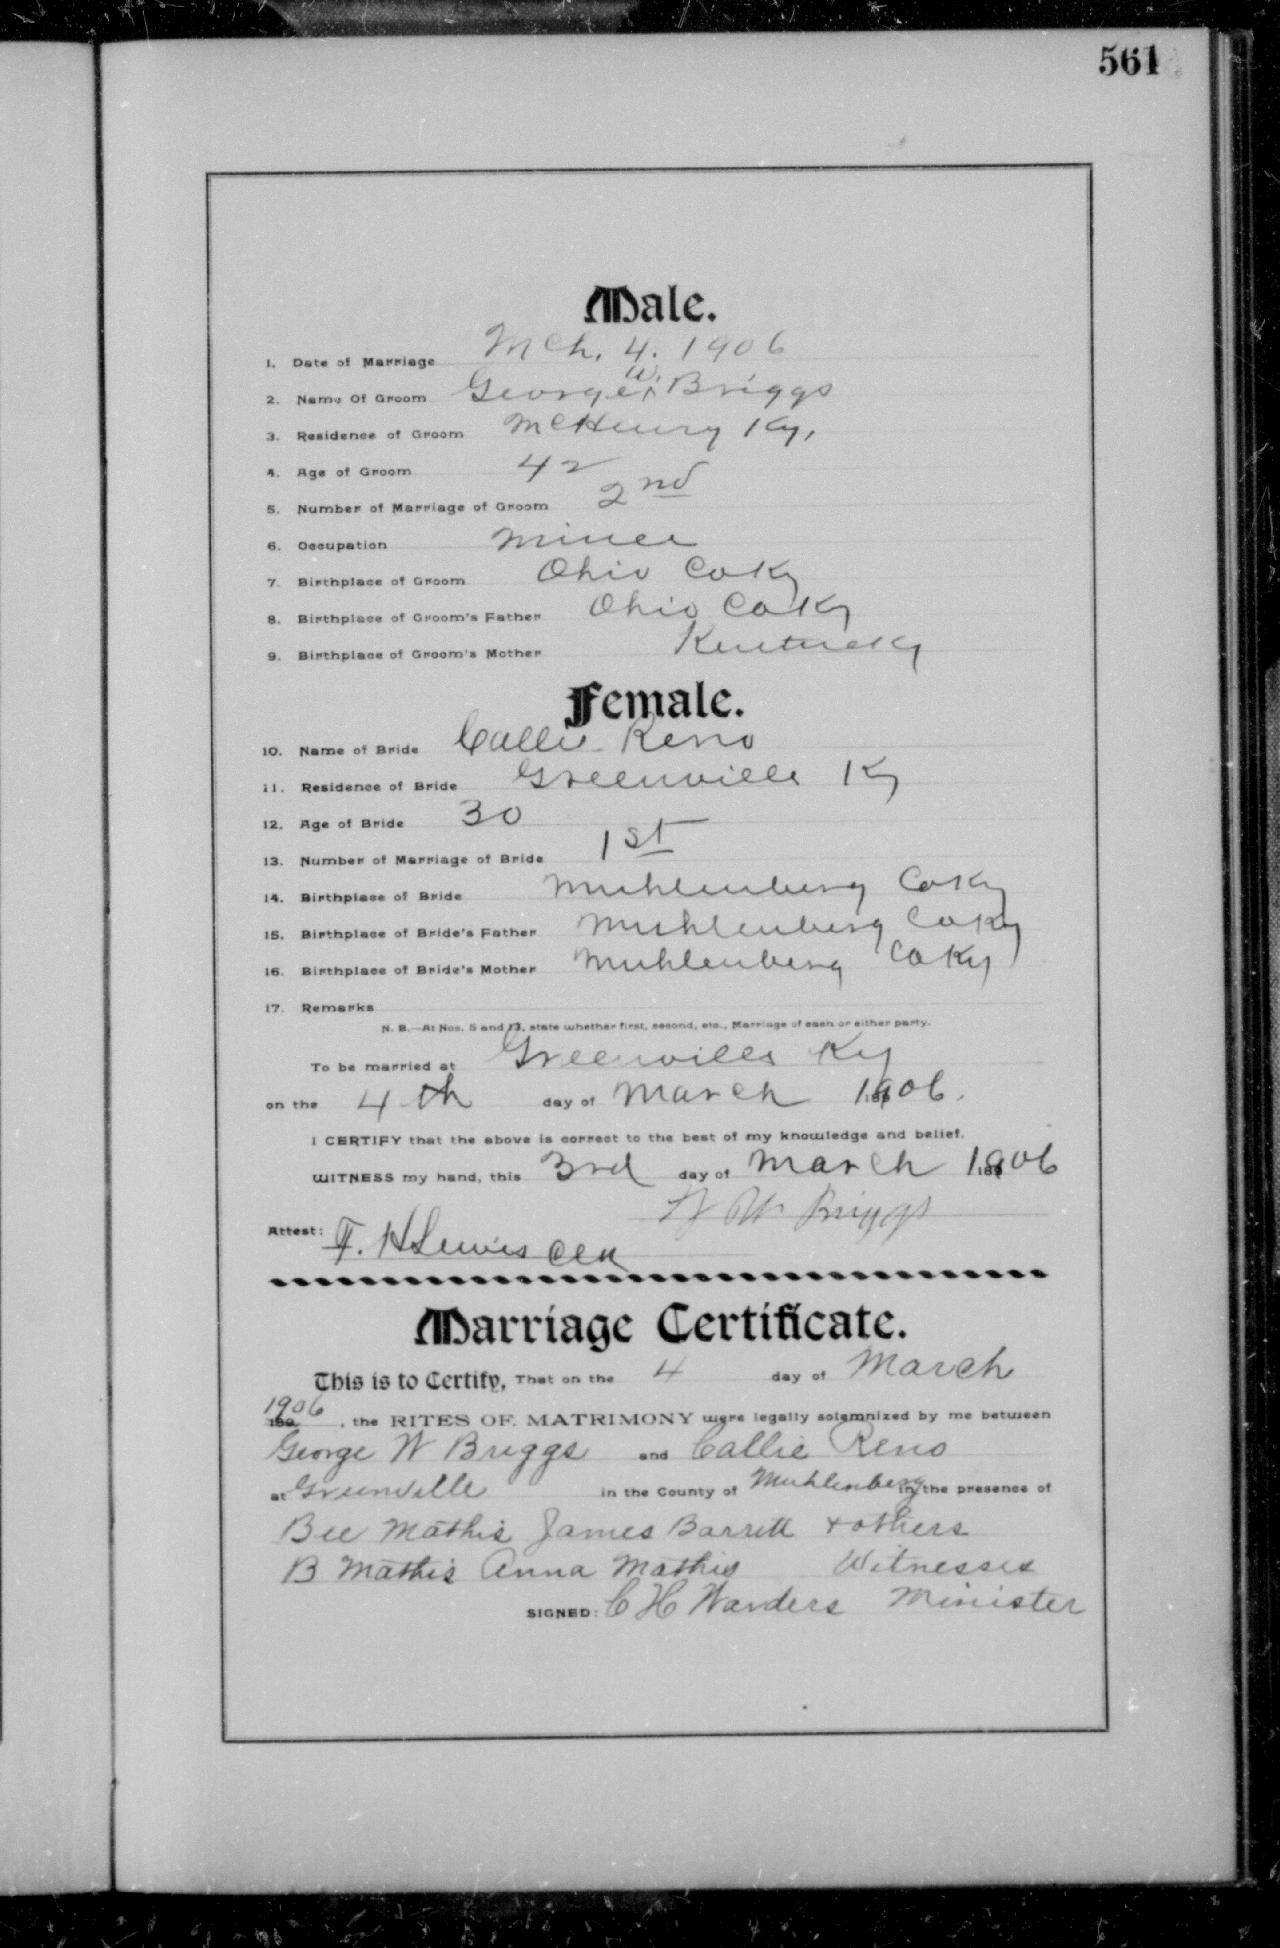 561
Male.
1. Date of Marriage Mch. 4. 1906
2. Name Of Groom George W. Briggs
3. Residence of Groom McHenry Ky,
4. Age of Groom 42
5. Number of Marriage of Groom 2nd
6. Occupation Miner
7. Birthplace of Groom Ohio Co Ky
8. Birthplace of Groom's Father Ohio Co Ky
9. Birthplace of Groom's Mother Kentucky
Female.
10. Name of Bride Callie Reno
11. Residence of Bride Greenville Ky
12. Age of Bride 30
13. Number of Marriage of Bride 1st
14. Birthplace of Bride Muhlenberg Co Ky
15. Birthplace of Bride's Father Muhlenberg Co Ky
16. Birthplace of Bride's Mother Muhlenberg Co Ky
17. Remarks
N. B.—At Nos. 5 and 13, state whether first, second, etc., Marriage of each or either party.
To be married at Greenville Ky
on the 4th day of March 1906.
I CERTIFY that the above is correct to the best of my knowledge and belief.
WITNESS my hand, this 3rd day of March 1906
W Briggs
Attest: T. H Lewis Clk
Marriage Certificate.
This is to Certify, That on the 4 day of March
1906, the RITES OF MATRIMONY were legally solemnized by me between
George W Briggs and Callie Reno
at Greenville in the County of Muhlenberg in the presence of
Bee Mathis James Barrett + others
B Mathis Anna Mathis Witnesses
SIGNED: C H Wanders Minister